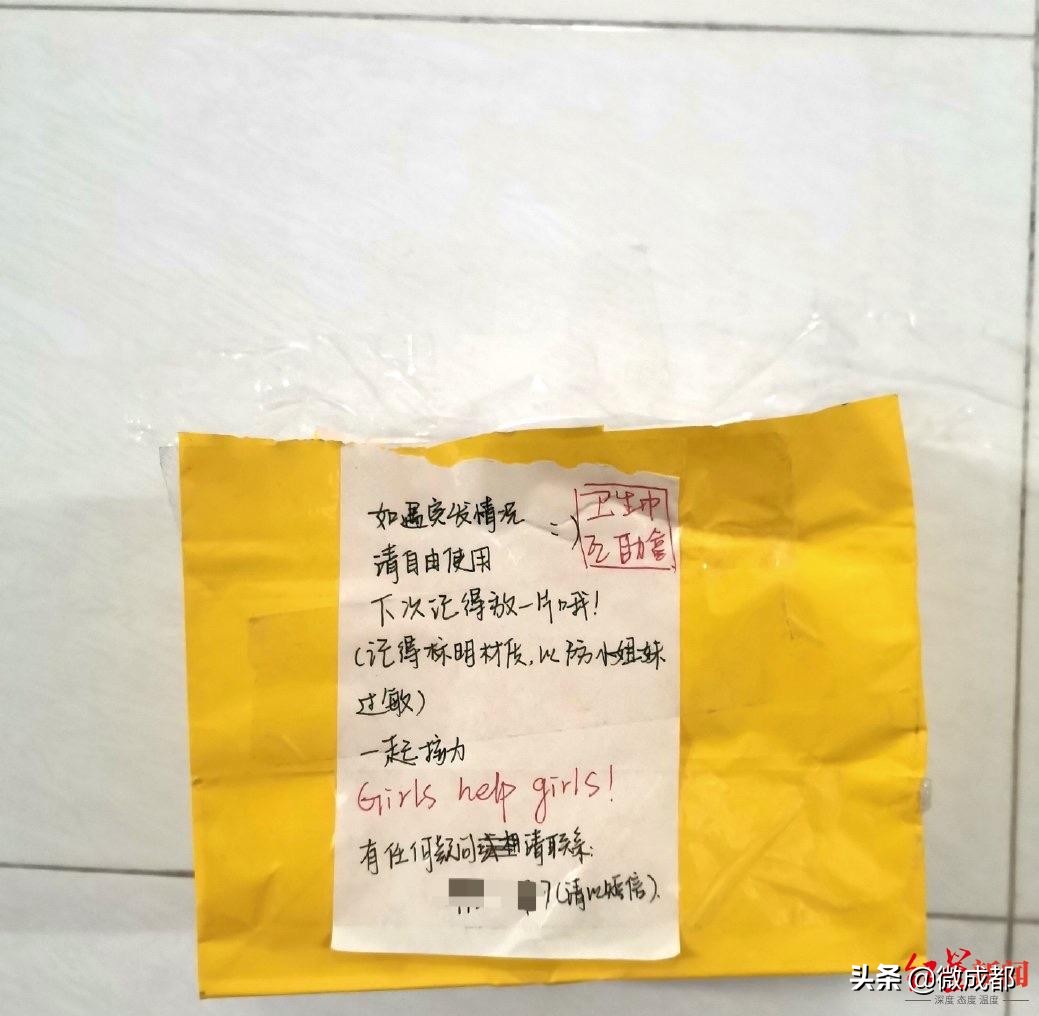 如遇突发情况 =)
卫生巾
互助盒
请自由使用
下次记得放一片哦!
(记得标明材质,以防小姐妹
过敏)
一起接力
Girls help girls!
有任何疑问请联系:
7(请以短信).
红星新闻
深度 态度 温度
头条 @微成都